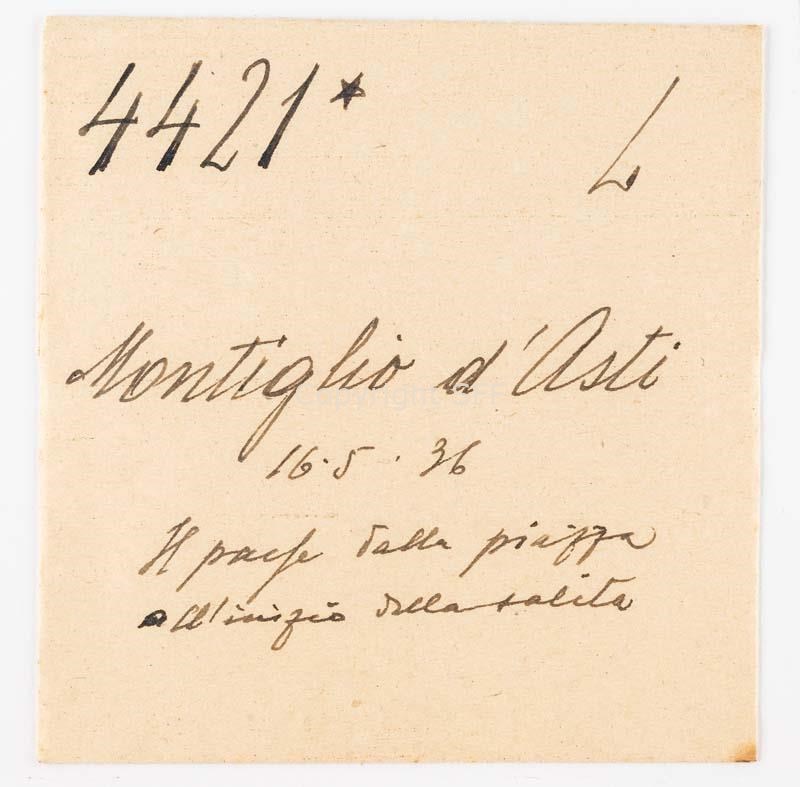 4421* L
Montiglio d'Asti
16.5.36
Il paese dalla piazza
all'inizio della salita